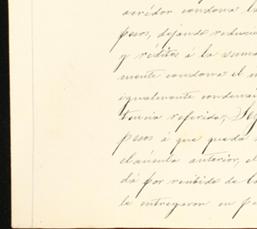 acrédor condona la
pesos, dejando reducid
y réditos á la suma
mente condona el
igualmente condona
tencia referida, Seg
pesos á que queda
cláusula anterior, el
dá por recibido de
le entregaron en pa